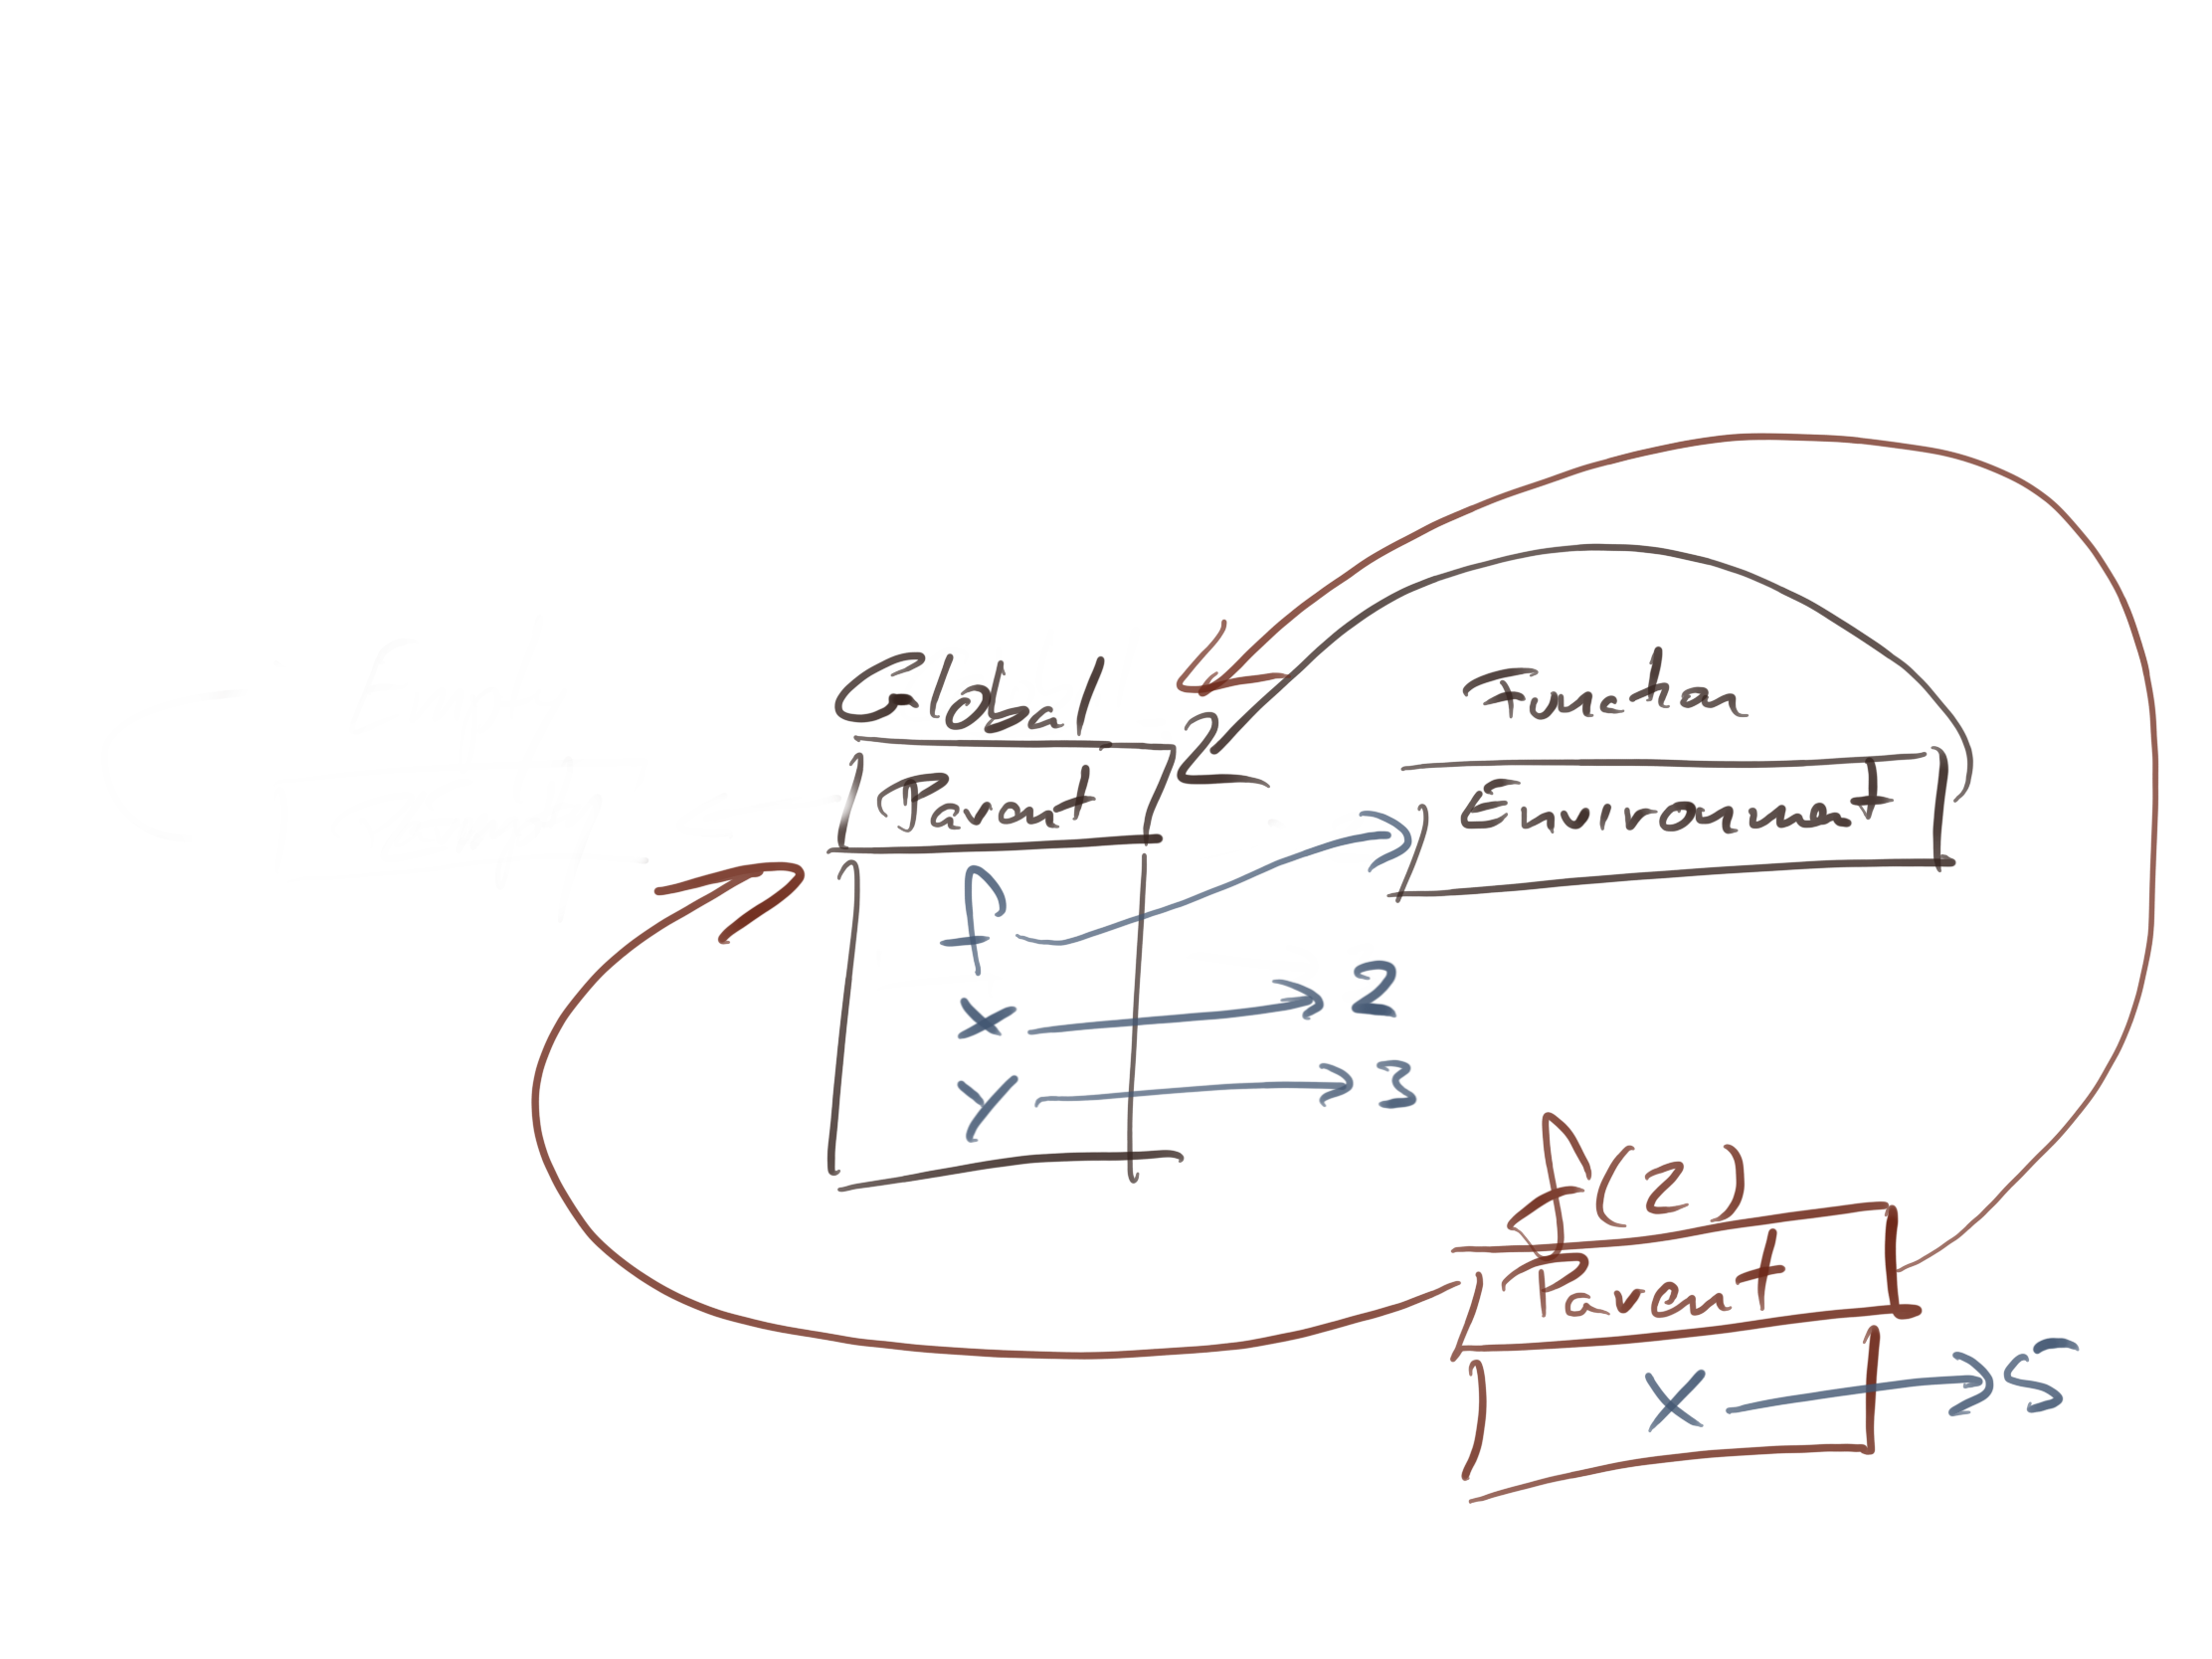 Global
Parent
f
x 2
y 3
Function
Environment
f(2)
Parent
x 5